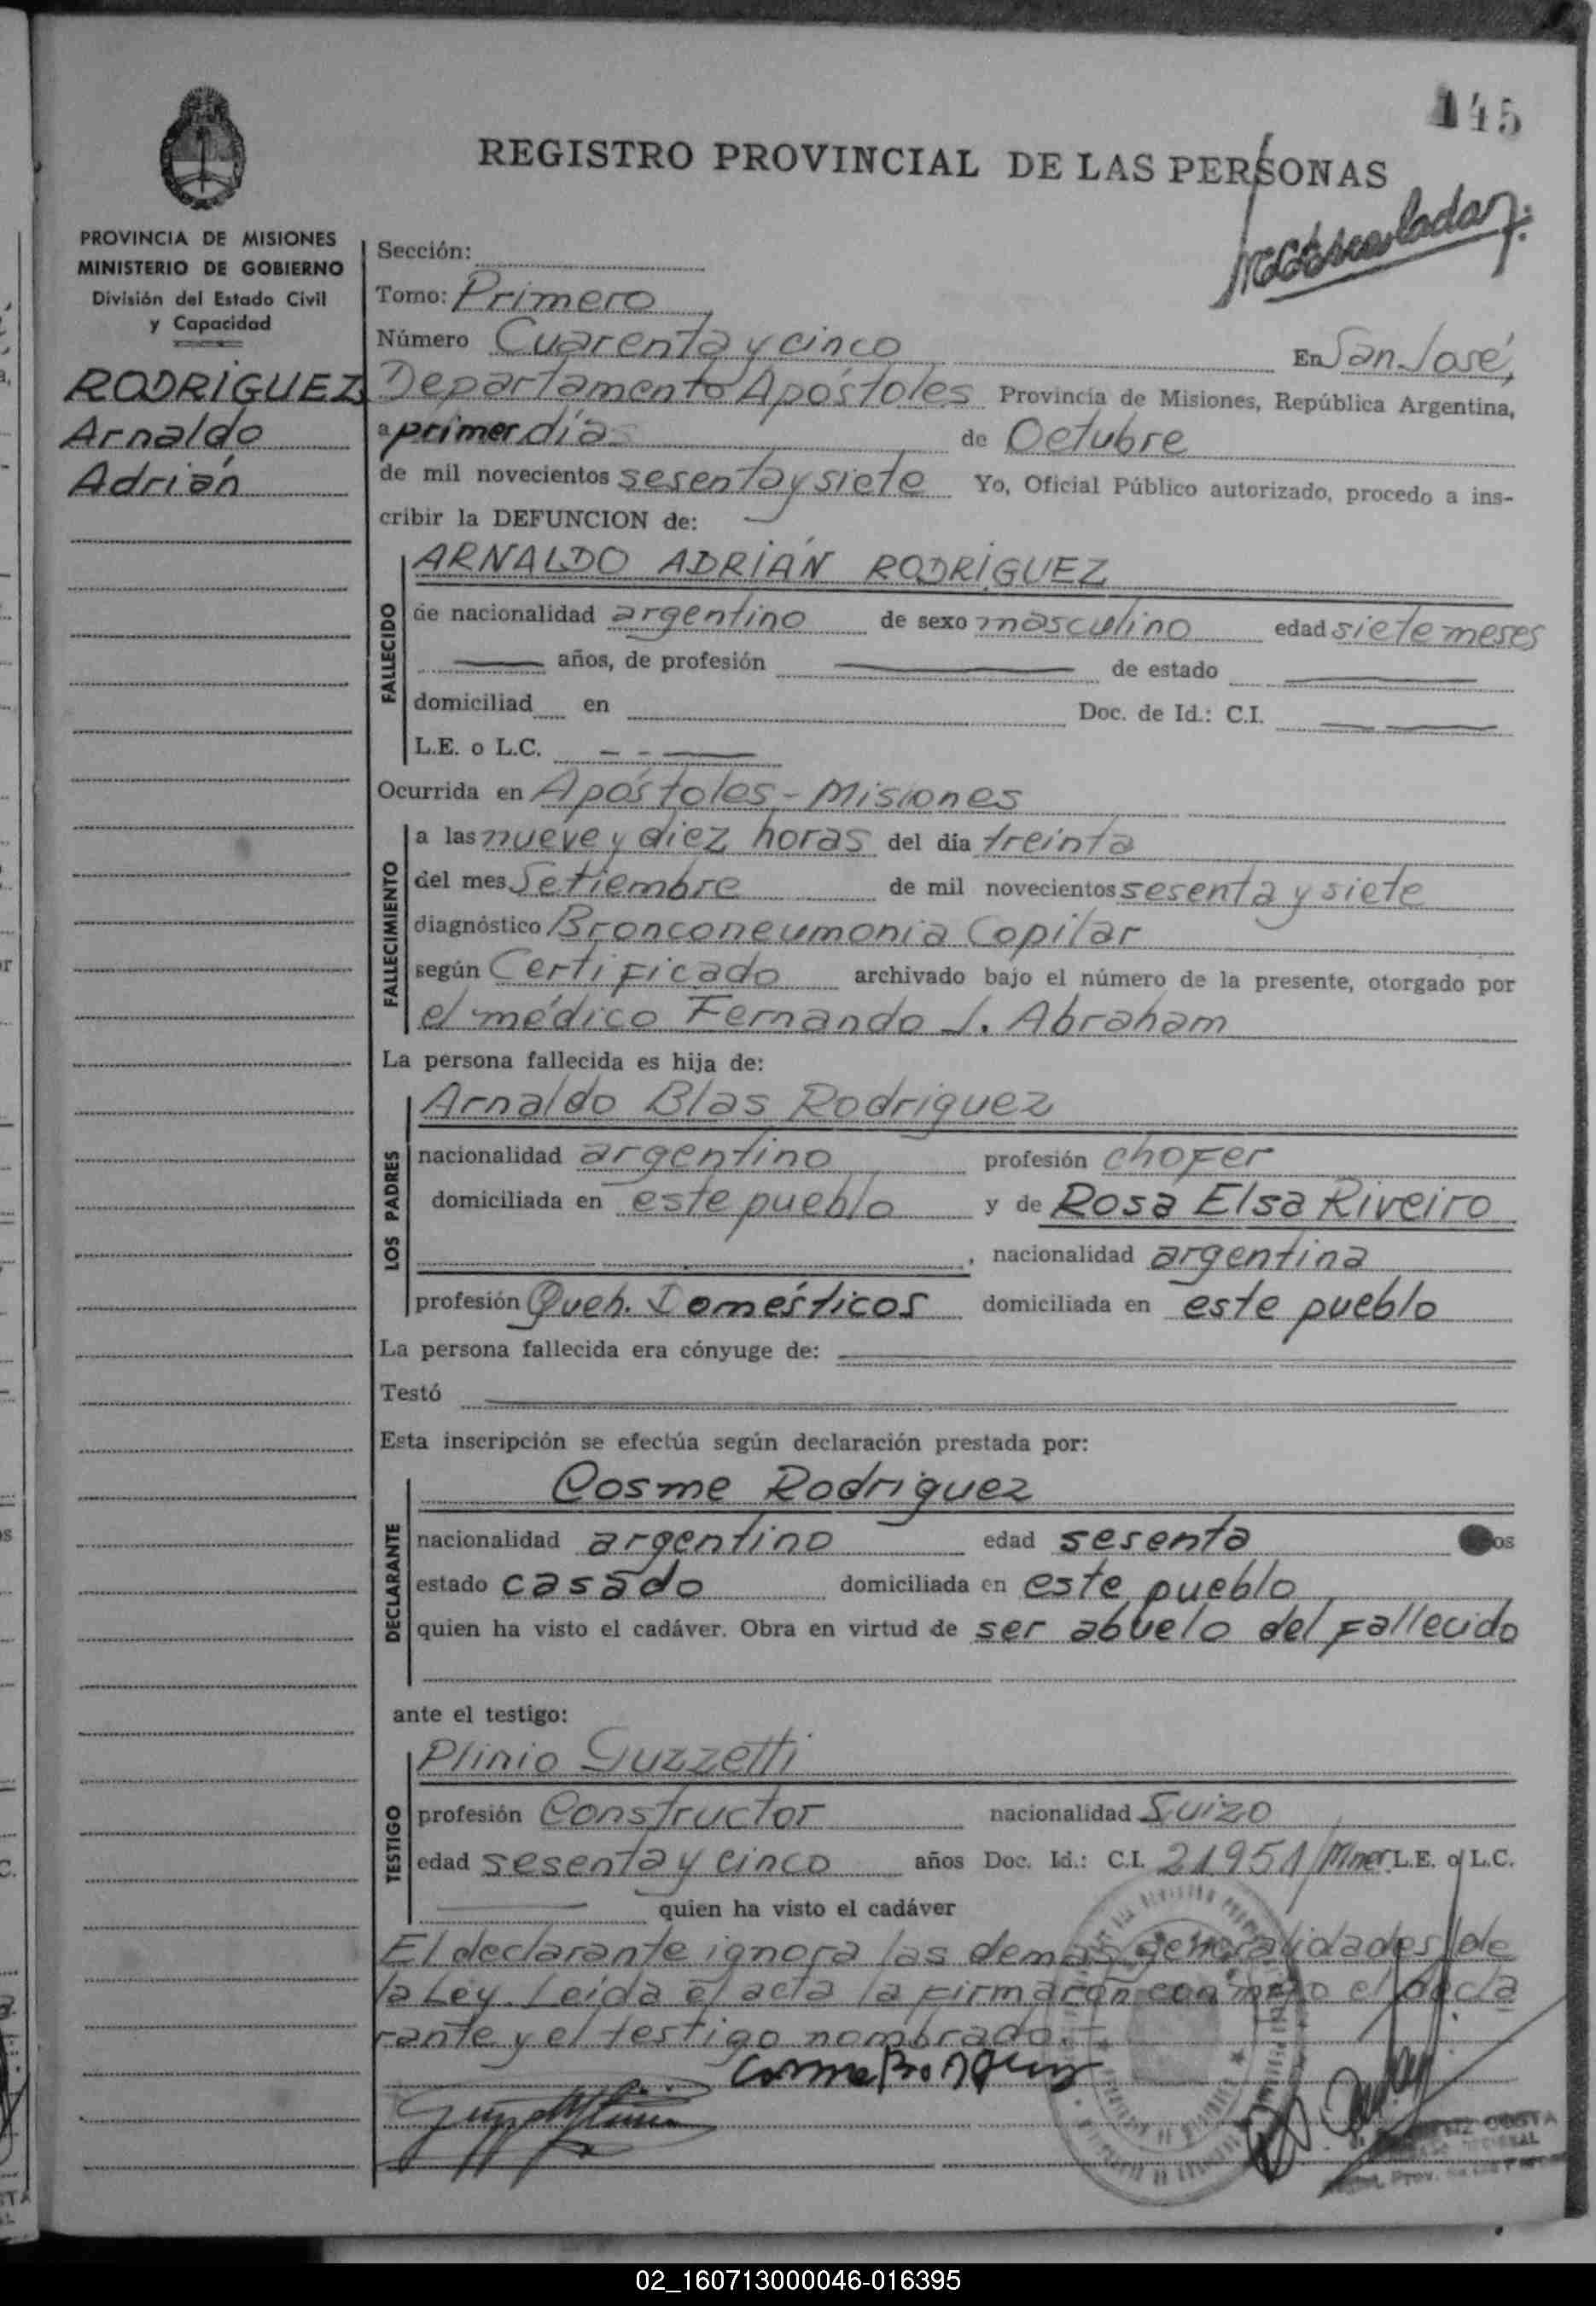 145
REGISTRO PROVINCIAL DE LAS PERSONAS
PROVINCIA DE MISIONES
MINISTERIO DE GOBIERNO
División del Estado Civil
y Capacidad
RODRÍGUEZ
Arnaldo
Adrián
Sección:
Tomo: Primero
Número Cuarenta y cinco En San José,
Departamento Apóstoles Provincia de Misiones, República Argentina,
a primer día de Octubre
de mil novecientos sesenta y siete Yo, Oficial Público autorizado, procedo a ins-
cribir la DEFUNCION de:
FALLECIDO
ARNALDO ADRIÁN RODRÍGUEZ
de nacionalidad argentino de sexo masculino edad siete meses
años, de profesión de estado
domiciliad en Doc. de Id.: C.I.
L.E. o L.C.
Ocurrida en Apóstoles - Misiones
FALLECIMIENTO
a las nueve y diez horas del día treinta
del mes Setiembre de mil novecientos sesenta y siete
diagnóstico Bronconeumonia Copilar
según Certificado archivado bajo el número de la presente, otorgado por
el médico Fernando J. Abraham
La persona fallecida es hija de:
LOS PADRES
Arnaldo Blas Rodriguez
nacionalidad argentino profesión chofer
domiciliada en este pueblo y de Rosa Elsa Riveiro
, nacionalidad argentina
profesión Queh. Domésticos domiciliada en este pueblo
La persona fallecida era cónyuge de:
Testó
Esta inscripción se efectúa según declaración prestada por:
DECLARANTE
Cosme Rodriguez
nacionalidad argentino edad sesenta os
estado casado domiciliada en este pueblo
quien ha visto el cadáver. Obra en virtud de ser abuelo del fallecido
ante el testigo:
TESTIGO
Plinio Guzzetti
profesión Constructor nacionalidad Suizo
edad sesenta y cinco años Doc. Id.: C.I. 21951 L.E. o L.C.
quien ha visto el cadáver
El declarante ignora las demás generalidades de
la Ley. Leída el acta la firmaron conmigo el decla
rante y el testigo nombrado.
02_160713000046-016395